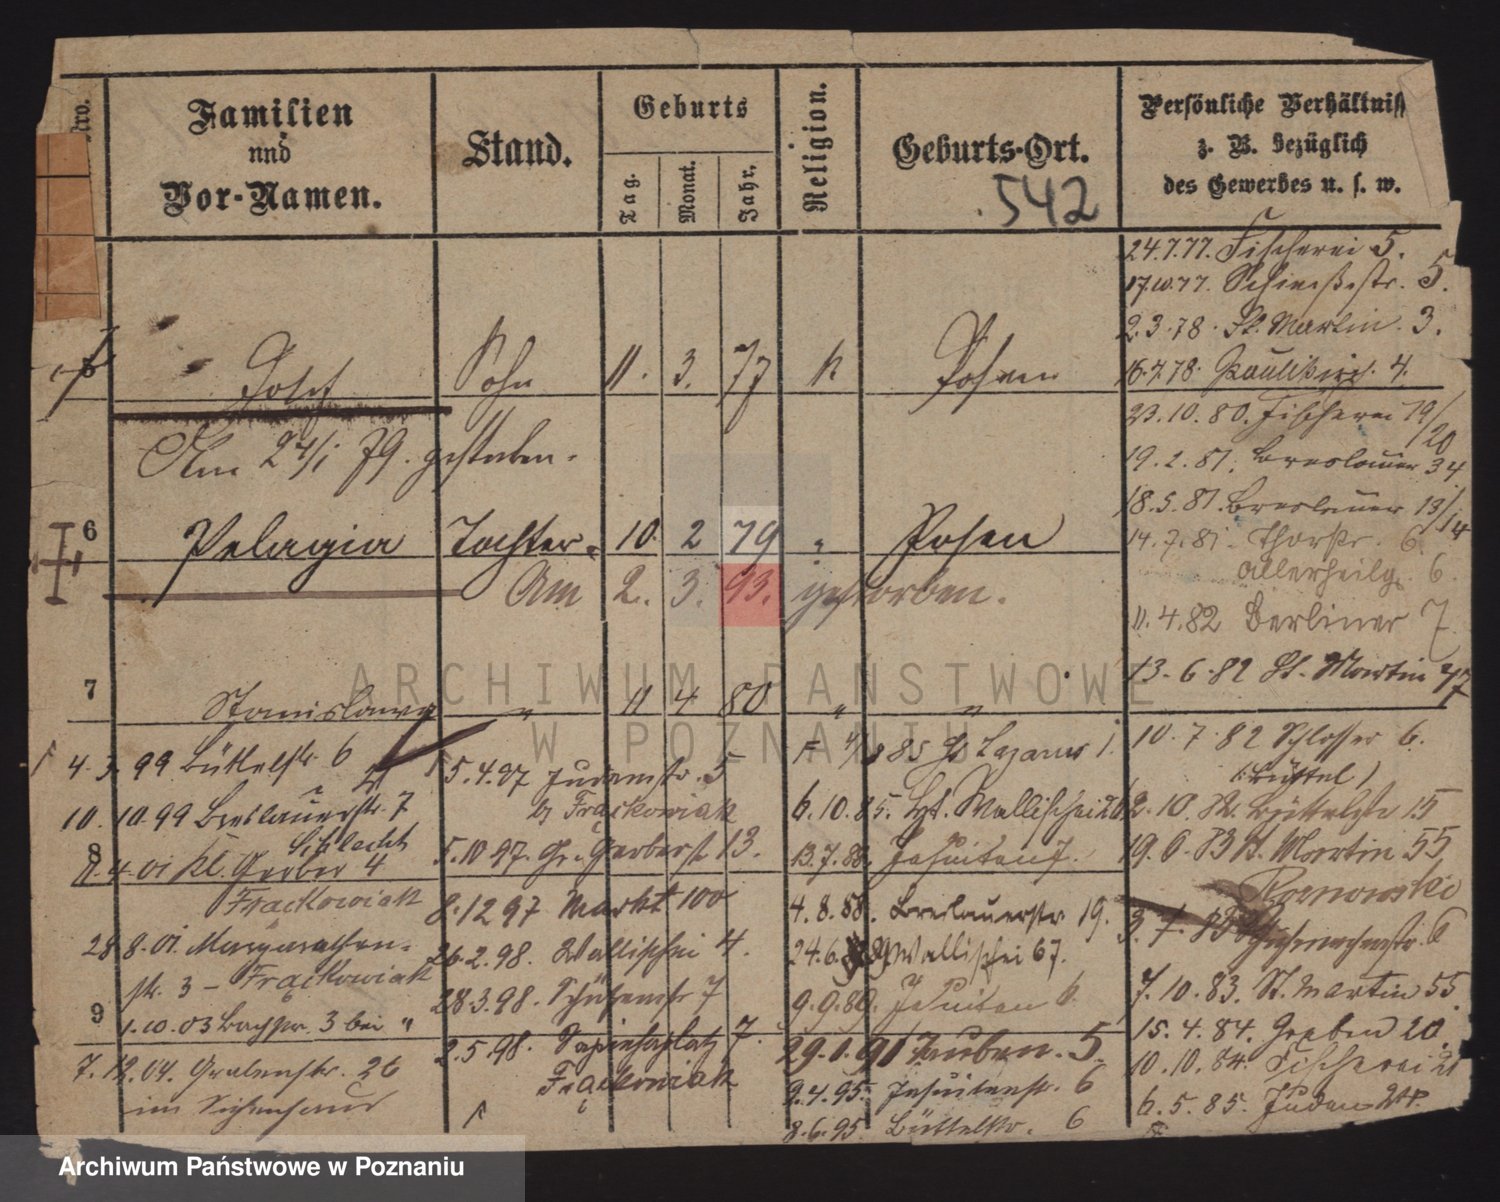 Nro.
Familien
und
Vor-Namen.
Stand.
Geburts
Tag.
Monat.
Jahr.
Religion.
Geburts-Ort.
542
Persönliche Verhältniss
z. B. bezüglich
des Gewerbes u. s. w.
24.7.77. Fischerei 5.
17.10.77. Schiessstr. 5.
2.3.78. St. Martin. 3.
16.4.78. Paulikirch. 4.
5 Josef Sohn 11. 3. 77 k Posen
Am 24/1 79. gestorben.
23.10.80. Fischerei 19/20
19.2.81. Breslauer 34
18.5.81. Breslauer 13/14
6 Pelagia Tochter 10. 2 79 " Posen
Am 2. 3. 93. gestorben.
14.7.81. Thorstr. 6.
Allerheilg. 6.
11.4.82 Berliner 7
13.6.82 St. Martin 77
7 Stanislawa " 11 4 80 " "
10.7.82 Schlosser 6.
(Büttel)
2.10.82. Büttelstr 15
19.6.83 St. Martin 55
3.7.83 6
7.10.83. St. Martin 55
15.4.84. Graben 20.
10.10.84. Fischerei 21
6.5.85. Juden
85 St Lazarus 1.
6.10.85. Wallischei
13.7.88. Jesuiten 7.
4.8.88. Breslauerstr 19.
24.6.89 Wallischei 67.
9.9.89. Jesuiten 6.
29.1.91 Tauben. 5.
2.4.95. Jesuitenstr. 6
8.6.95. Büttelstr. 6
5.4.97 Judenstr. 5
b/ Frąckowiak
5.10 97. Gr. Gerberst 13.
8.12 97 Markt 100
26.2.98. Wallischei 4.
28.3.98. Schützenstr 7
2.5.98. Sapiehaplatz 7.
Frąckowiak
4.3.99 Büttelstr. 6
10.10.99 Breslauerstr. 7
Schlecht
8
4.01 Kl. Gerber 4
Frąckowiak
28 8.01. Margarethen-
str. 3 - Frąckowiak
9
1.10.03 Bachstr. 3 bei "
7.12.04. Grabenstr. 26
im Siechenhaus
ARCHIWUM PAŃSTWOWE
W POZNANIU
Archiwum Państwowe w Poznaniu